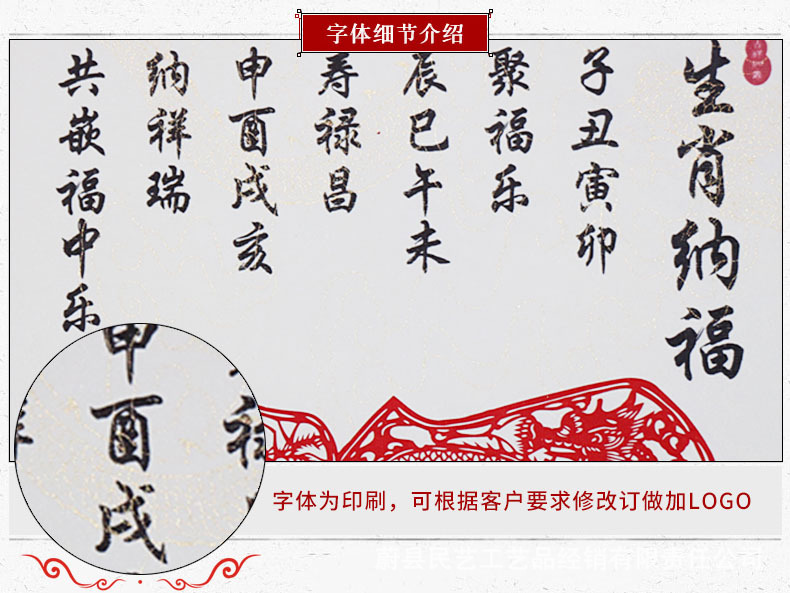 字体细节介绍
生肖纳福
子丑寅卯
聚福乐
辰巳午未
寿禄昌
申酉戌亥
纳祥瑞
共嵌福中乐
申酉戌
字体为印刷，可根据客户要求修改订做加LOGO
蔚县民艺工艺品经销有限责任公司